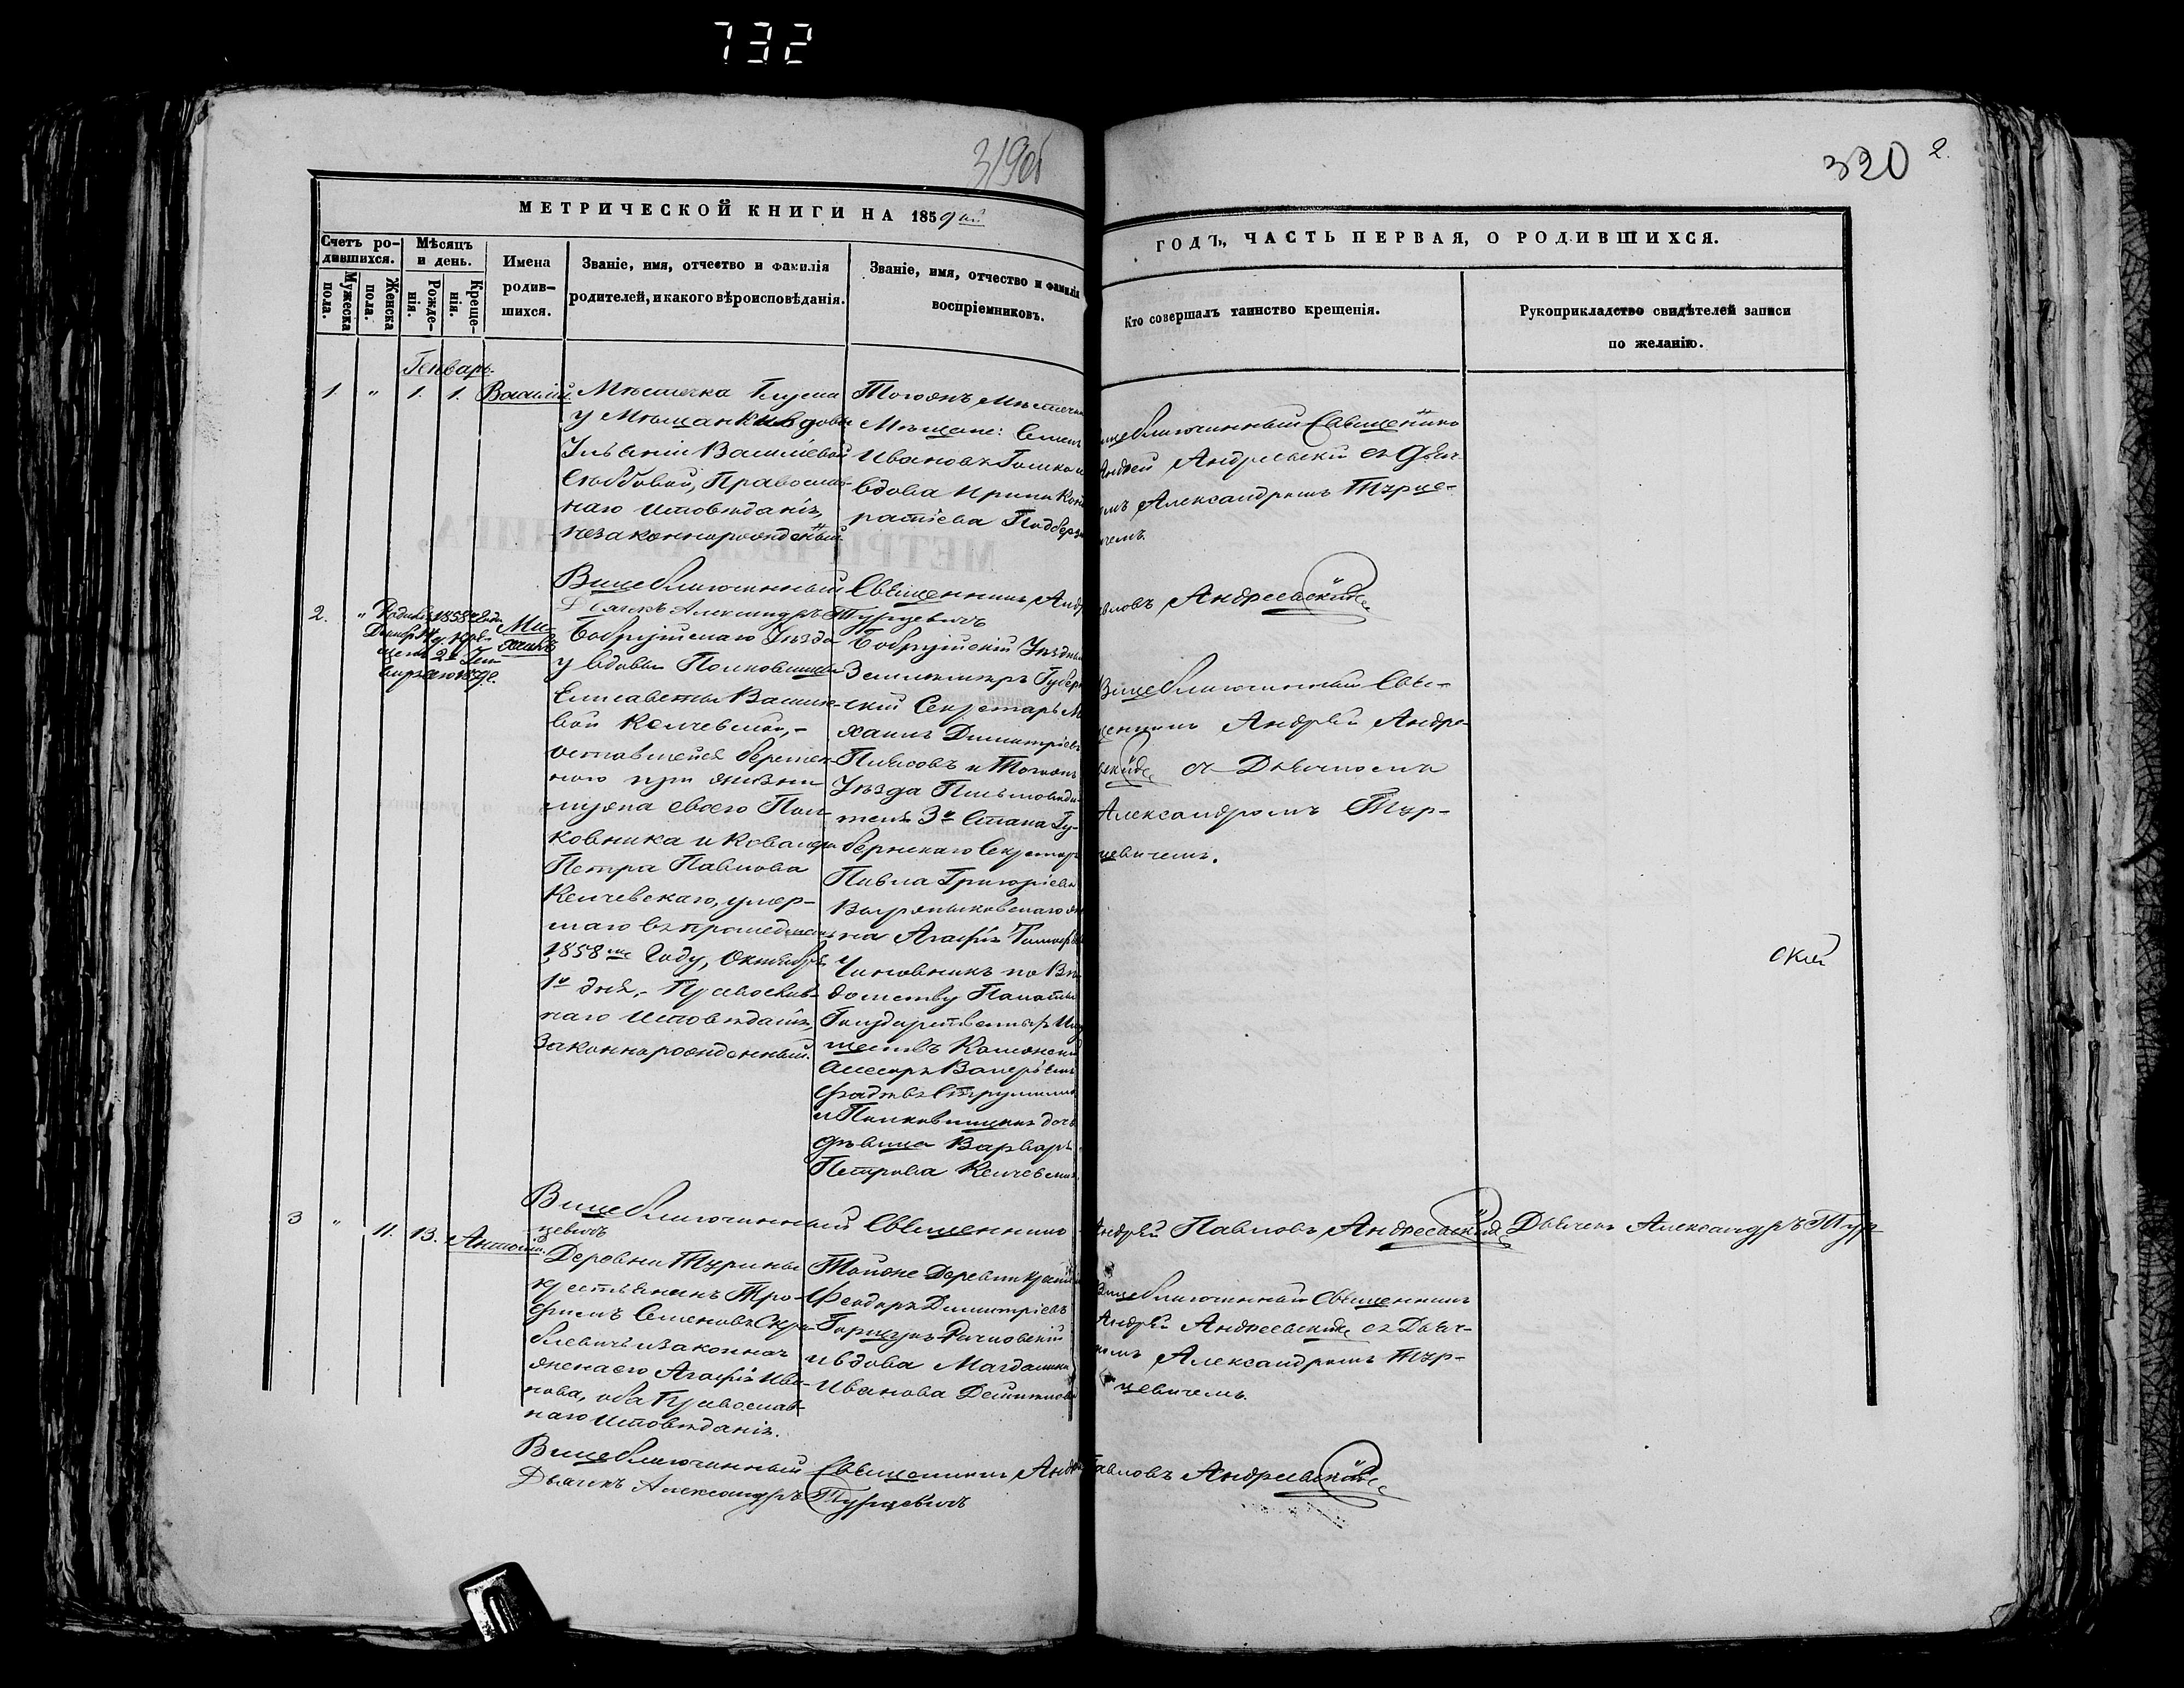 732
319об
320 2.
МЕТРИЧЕСКОЙ КНИГИ НА 1859 ый
ГОДЪ, ЧАСТЬ ПЕРВАЯ, О РОДИВШИХСЯ.
Счетъ ро-
дившихся.
Мужеска
пола.
Женска
пола.
Мѣсяцъ
и день.
Рожде-
нія.
Креще-
нія.
Имена
родив-
шихся.
Званіе, имя, отчество и фамилія
родителей, и какого вѣроисповѣданія.
Званіе, имя, отчество и фамилія
воспріемниковъ.
Кто совершалъ таинство крещенія.
Рукоприкладство свидѣтелей записи
по желанію.
Генварь.
1. " 1. 1. Василій.
Мѣстечка Глуска
у Мѣщанки вдовы
Ульяніи Василіевой
Православ-
наго исповѣданія,
незаконнорожденный
Тогожъ Мѣстечка
Мѣщане: Семенъ
Ивановъ и
вдова Ирина Конд
ратіева
Вицеблагочинный Священникъ
Андрей Андреевскій съ Дьяч
омъ Александромъ Турце-
вичемъ.
Вицеблагочинный Священникъ Андрей Павловъ Андреевскій
Дьячекъ Александръ Турцевичъ
2. " Родился 1858 года
Декабр
щенъ 2 Ген
варя 1859 г.
Ми-
хаилъ
Бобруйскаго Уѣзда
у вдовы Полковницы
Елисаветы Василіе-
вой Келчевской,-
оставшейся беремен-
ною при жизни
мужа своего Пол-
ковника и Кавалера
Петра Павлова
Келчевскаго, умер-
шаго въ прошедшемъ
1858 мъ Году, Октября
1го дня,- Православ-
наго Исповѣданія,
Законнорожденный.
Бобруйскій Уѣздный
Землемѣръ Губерн
скій Секретарь Ми
хаилъ Димитріевъ
и Тогожъ
Уѣзда Письмоводи-
теля 3го Стана Гу-
бернскаго Секретаря
Павла Григоріева
же
на Агафія
Чиновникъ по Вѣ
домству Палаты
Государственныхъ Иму
ществъ Колежскій
Асессоръ Валеріанъ
и Полковницкая дочь
дѣвица Варвара
Петрова Келчевская
Вицеблагочинный Свя-
щенникъ Андрей Андре-
евскій съ Дьячкомъ
Александромъ Тур-
цевичемъ.
скій
Вицеблагочинный Священникъ Андрей Павловъ Андреевскій Дьячекъ Александръ Тур
цевичъ
3 " 11. 13. Антоній.
Деревни Турины
крестьянинъ Тро-
фимъ Семеновъ
и законная
жена его Агафія Ива-
нова, оба Православ-
наго исповѣданія.
Тойже Деревни крест
Феодоръ Димитріевъ
и вдова Магдалина
Иванова
Вицеблагочинный Священникъ
Андрей Андреевскій съ Дьяч-
комъ Александромъ Тур-
цевичемъ.
Вицеблагочинный Священникъ Андрей Павловъ Андреевскій
Дьячекъ Александръ Турцевичъ